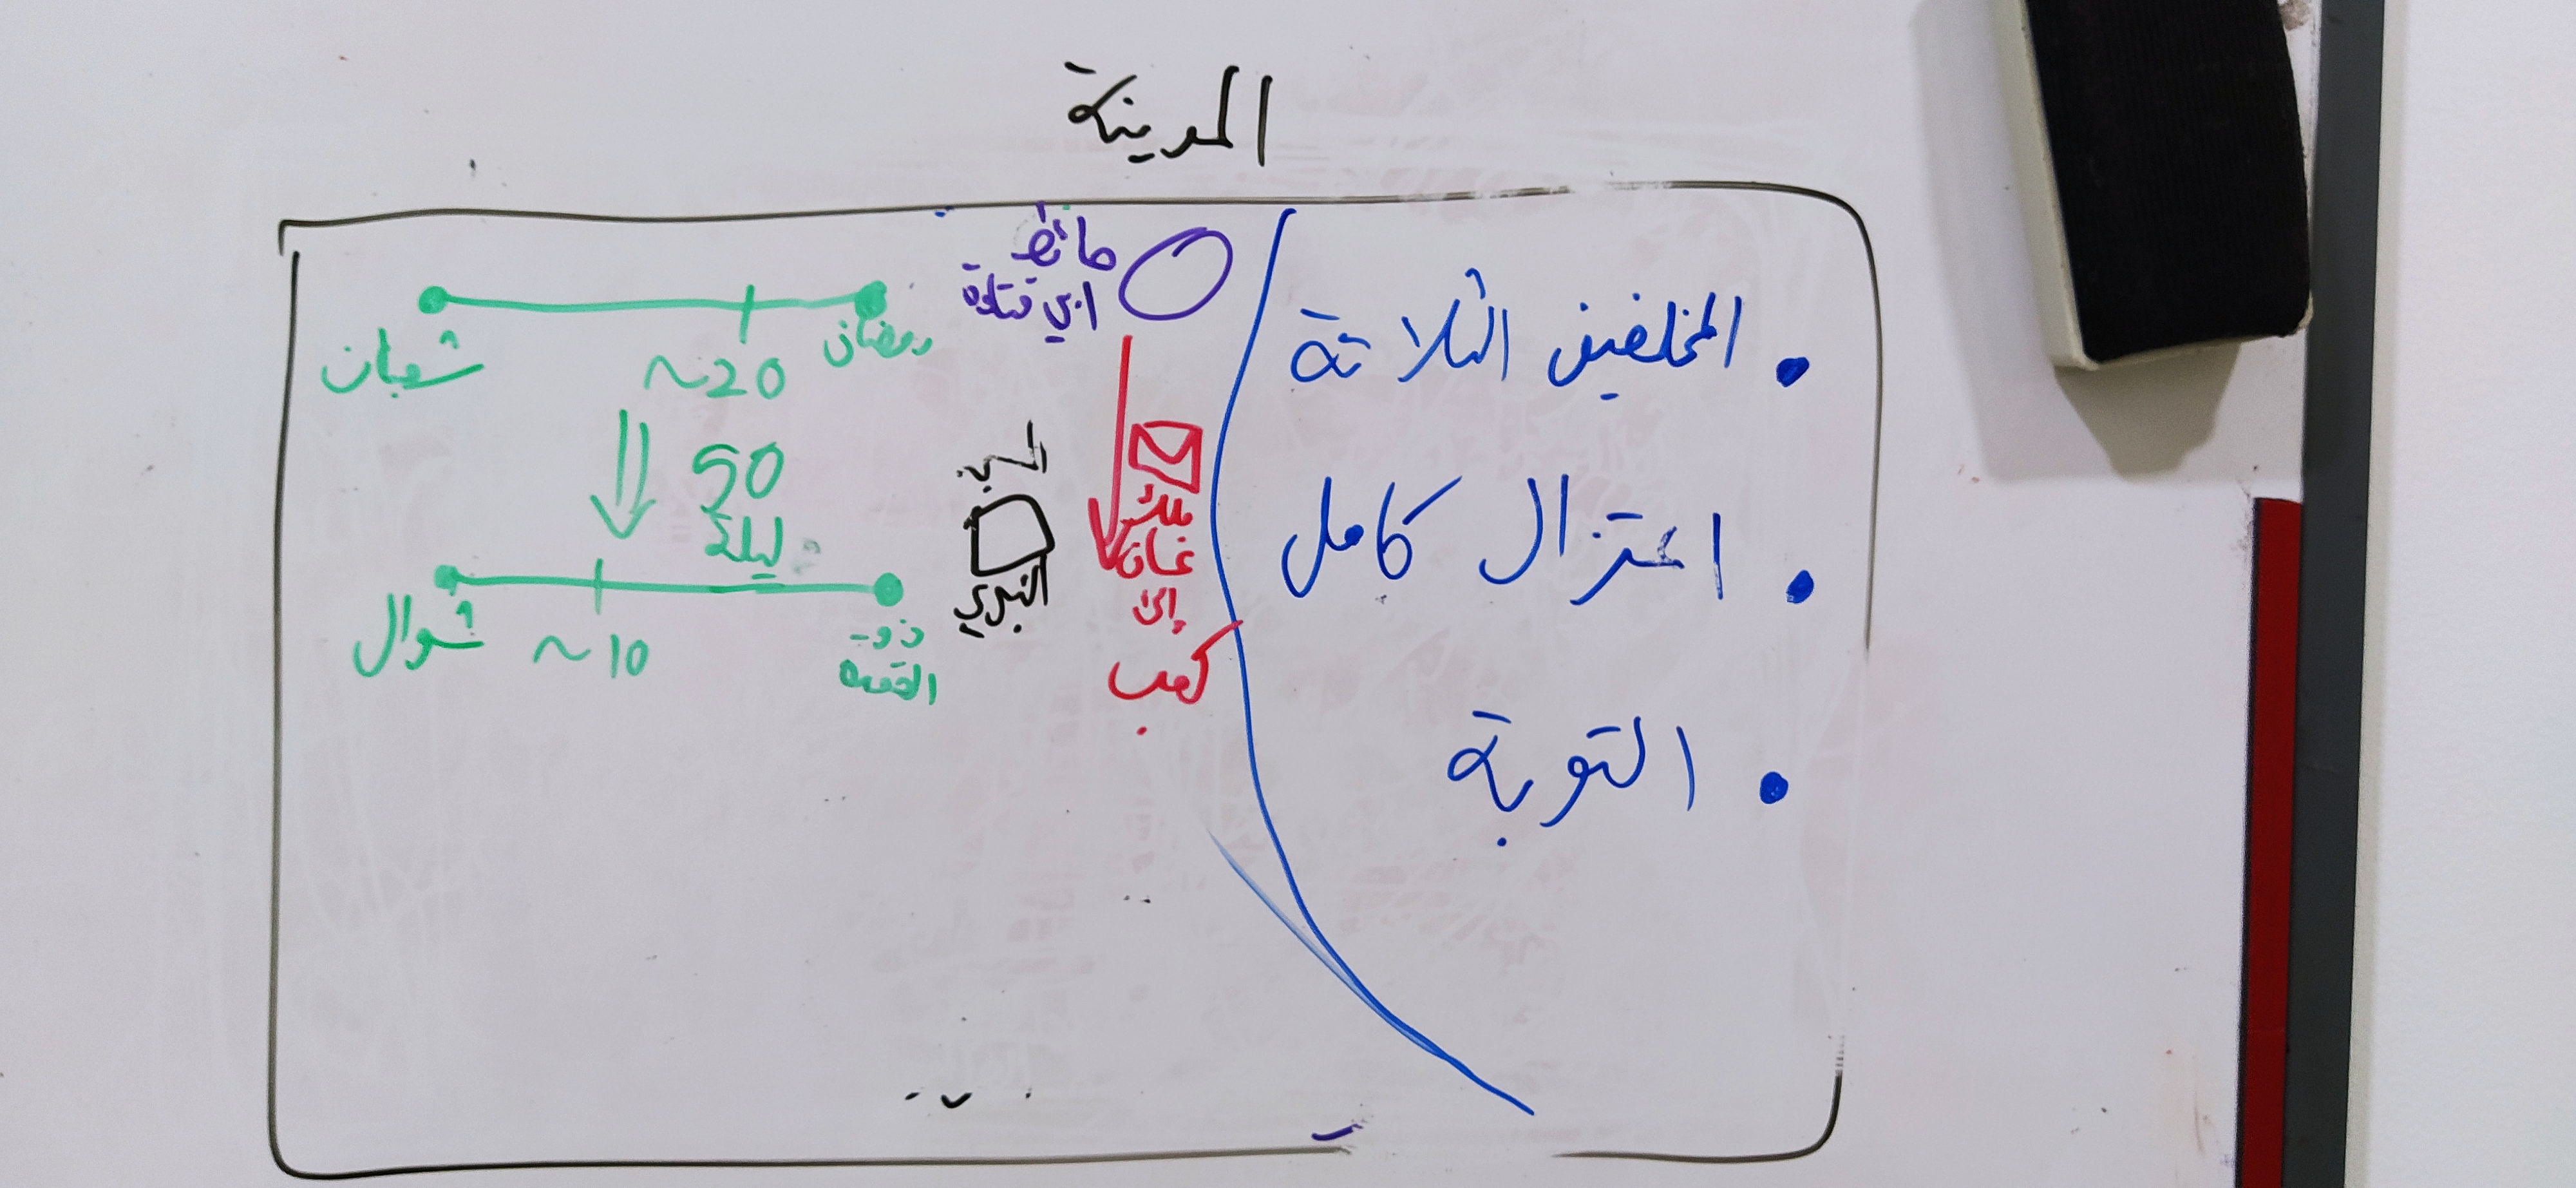 المدينة
المخلفين الثلاثة
اعتزال كامل
التوبة
حائط
ابي قتادة
ملك
غسان
إلى
كعب
المسجد
النبوي
رمضان
~20
شعبان
50
ليلة
ذو
القعدة
~10
شوال